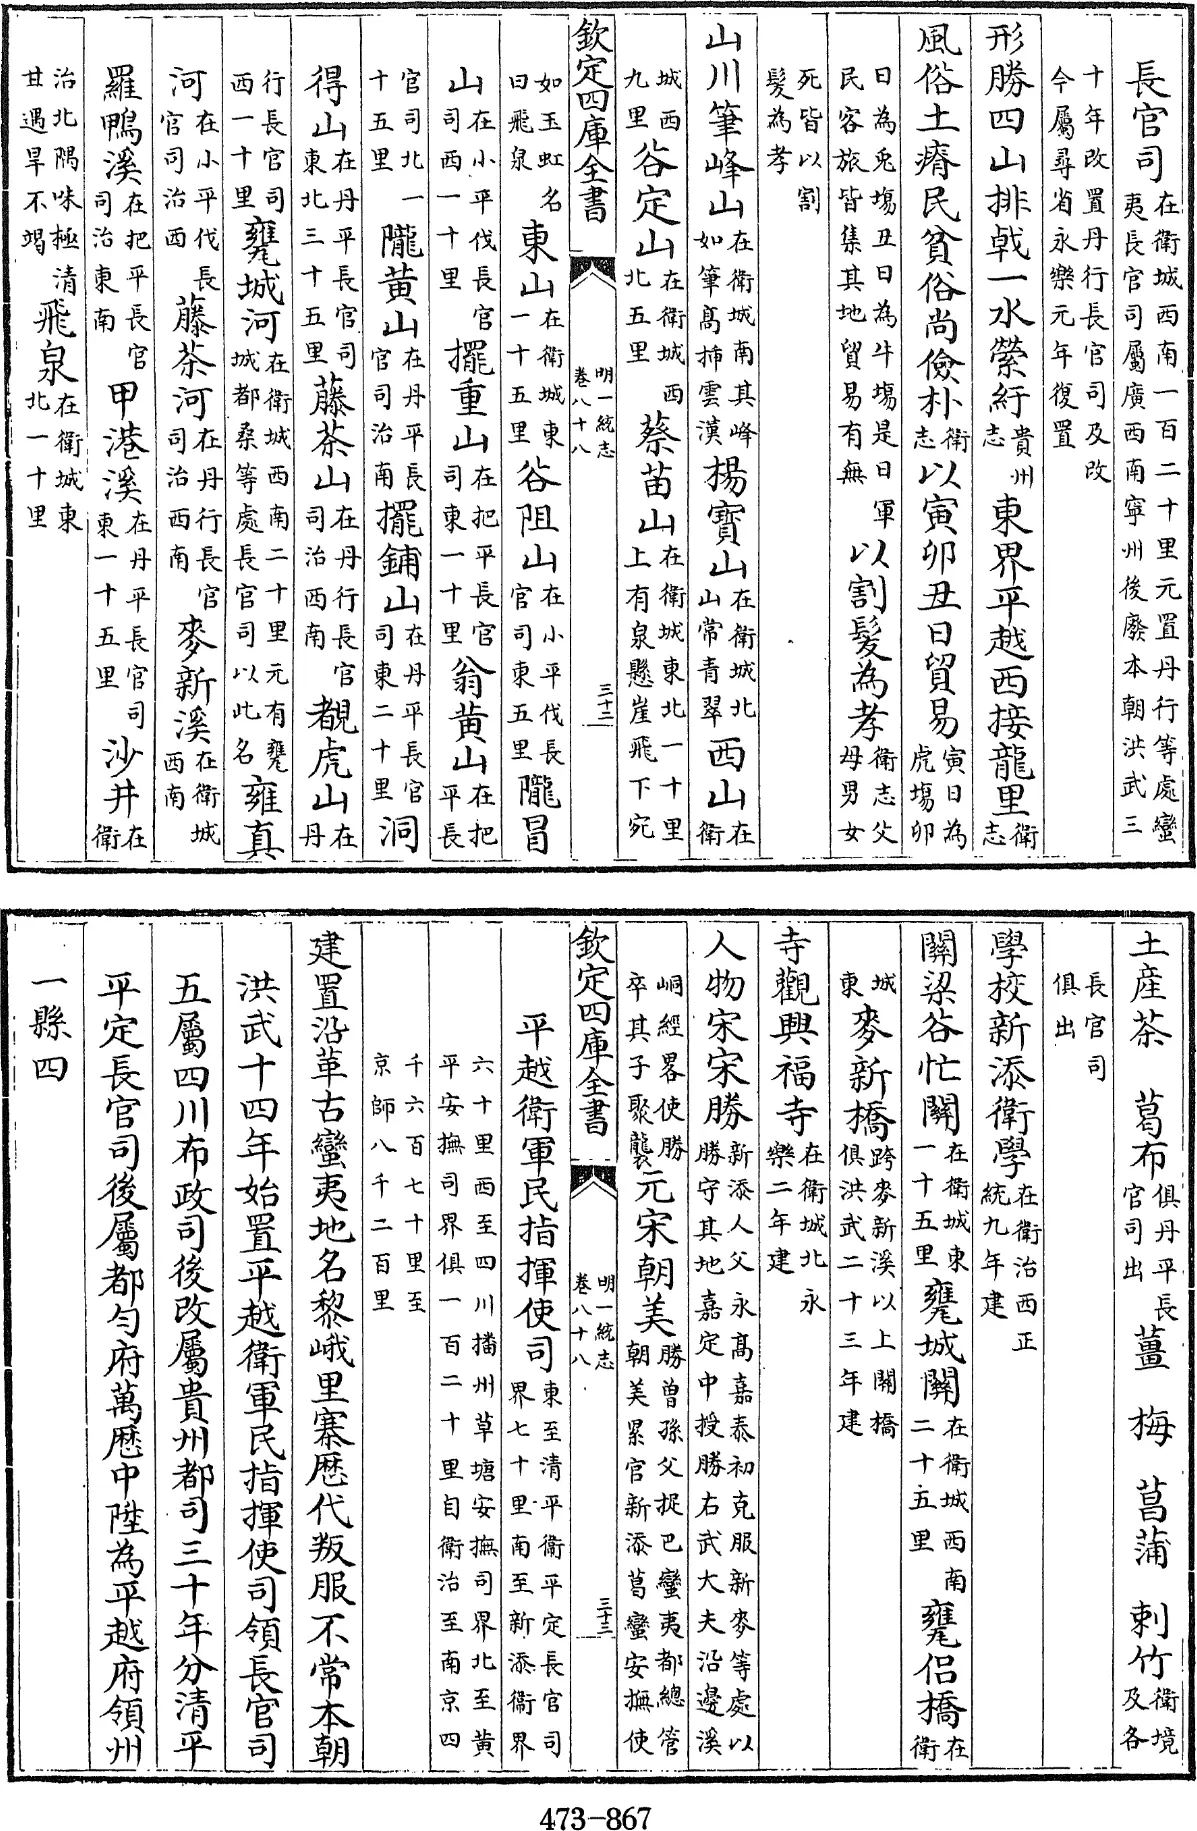 長官司在衛城西南一百二十里元置丹行等處蠻夷長官司屬廣西南寧州後廢本朝洪武三
十年改置丹行長官司及改今屬尋省永樂元年復置
形勝四山排戟一水縈紆貴州志東界平越西接龍里衛志
風俗土瘠民貧俗尚儉朴衛志以寅卯丑日貿易寅日為虎塲卯
日為兎塲丑日為牛塲是日軍民客旅皆集其地貿易有無以割髮為孝衛志父母男女
死皆以割髮為孝
山川筆峰山在衛城南其峰如筆髙揷雲漢楊寶山在衛城北山常青翠西山在衛
城西九里谷定山在衛城西北五里蔡苗山在衛城東北一十里上有泉懸崖飛下宛
欽定四庫全書
明一統志
卷八十八
三十二
如玉虹名曰飛泉東山在衛城東一十五里谷阻山在小平伐長官司東五里隴冒
山在小平伐長官司西一十里擺重山在把平長官司東一十里翁黄山在把平長
官司北一十五里隴黄山在丹平長官司治南擺鋪山在丹平長官司東二十里洞
得山在丹平長官司東北三十五里藤茶山在丹行長官司治西南覩虎山在丹
行長官司西一十里甕城河在衛城西南二十里元有甕城都桑等處長官司以此名雍真
河在小平伐長官司治西藤茶河在丹行長官司治西南麥新溪在衛城西南
羅鴨溪在把平長官司治東南甲港溪在丹平長官司東一十五里沙井在衛
治北隅味極清甘遇旱不竭飛泉在衛城東北一十里
土産茶 葛布俱丹平長官司出薑 梅 菖蒲 刺竹衛境及各
長官司俱出
學校新添衛學在衛治西正統九年建
關梁谷忙關在衛城東一十五里甕城關在衛城西南二十五里甕侶橋在衛
城東麥新橋跨麥新溪以上關橋俱洪武二十三年建
寺觀興福寺在衛城北永樂二年建
人物宋宋勝新添人父永髙嘉泰初克服新麥等處以勝守其地嘉定中授勝右武大夫沿邊溪
峒經畧使勝卒其子聚襲元宋朝美勝曽孫父捉巴蠻夷都總管朝美累官新添葛蠻安撫使
欽定四庫全書
明一統志
卷八十八
三十三
平越衛軍民指揮使司東至清平衛平定長官司界七十里南至新添衛界
六十里西至四川播州草塘安撫司界北至黄平安撫司界俱一百二十里自衛治至南京四
千六百七十里至京師八千二百里
建置沿革古蠻夷地名黎峨里寨歴代叛服不常本朝
洪武十四年始置平越衛軍民指揮使司領長官司
五屬四川布政司後改屬貴州都司三十年分清平
平定長官司後屬都勻府萬歴中陞為平越府領州
一縣四
473-867